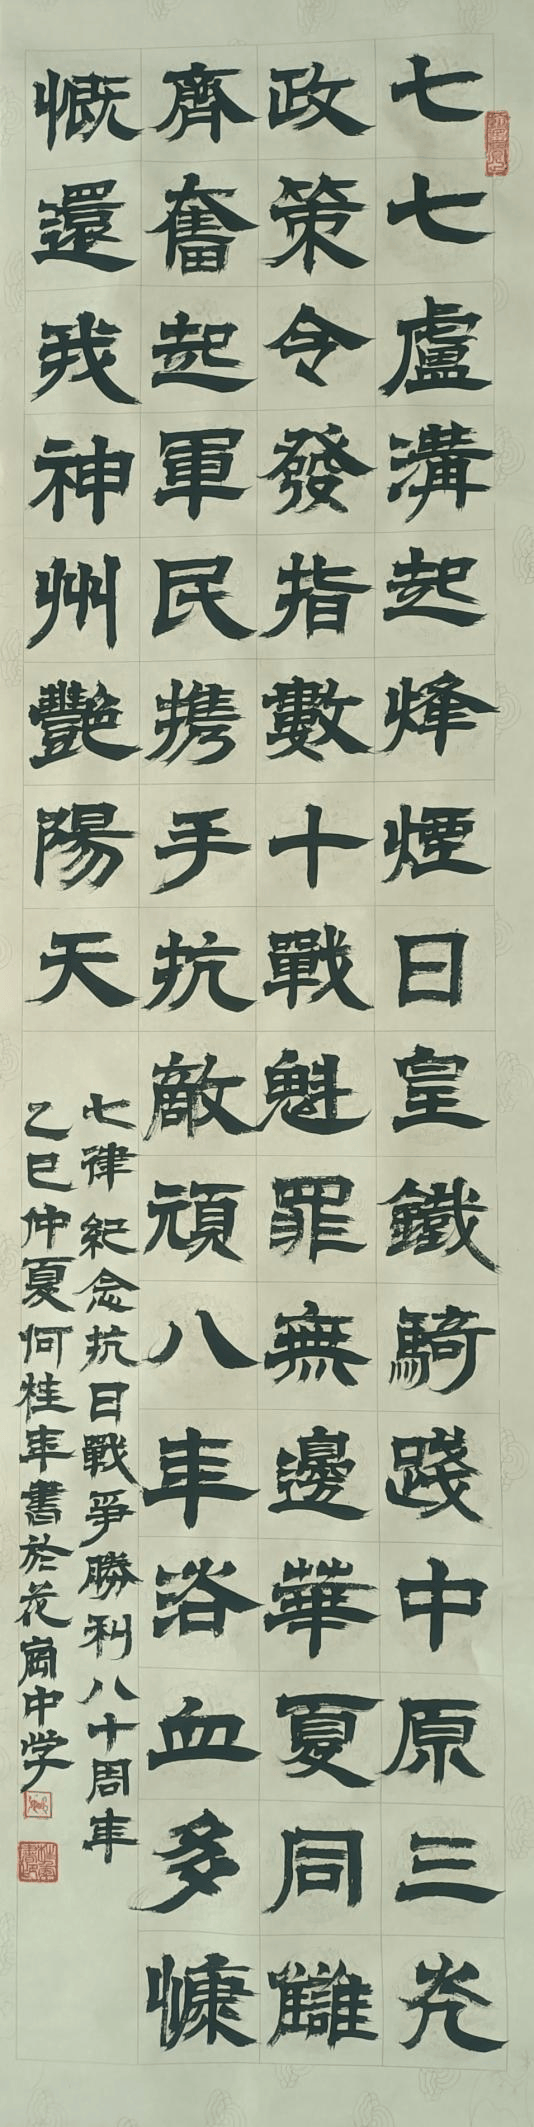 七七盧溝起烽煙日皇鐵騎踐中原三光
政策令發指數十戰魁罪無邊華夏同讎
齊奮起軍民携手抗敵頑八年浴血多慷
慨還我神州艷陽天
七律紀念抗日戰爭勝利八十周年
乙巳仲夏何桂年書於花崗中学